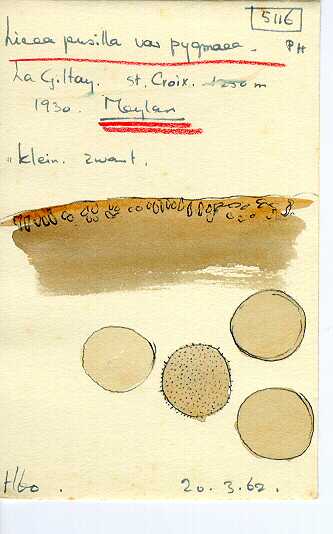 5116
Licea pusilla var pygmaea. PH
La Giltay. St. Croix. 1250 m
1930. Meylan
" klein. zwart.
H60. 20.3.62.